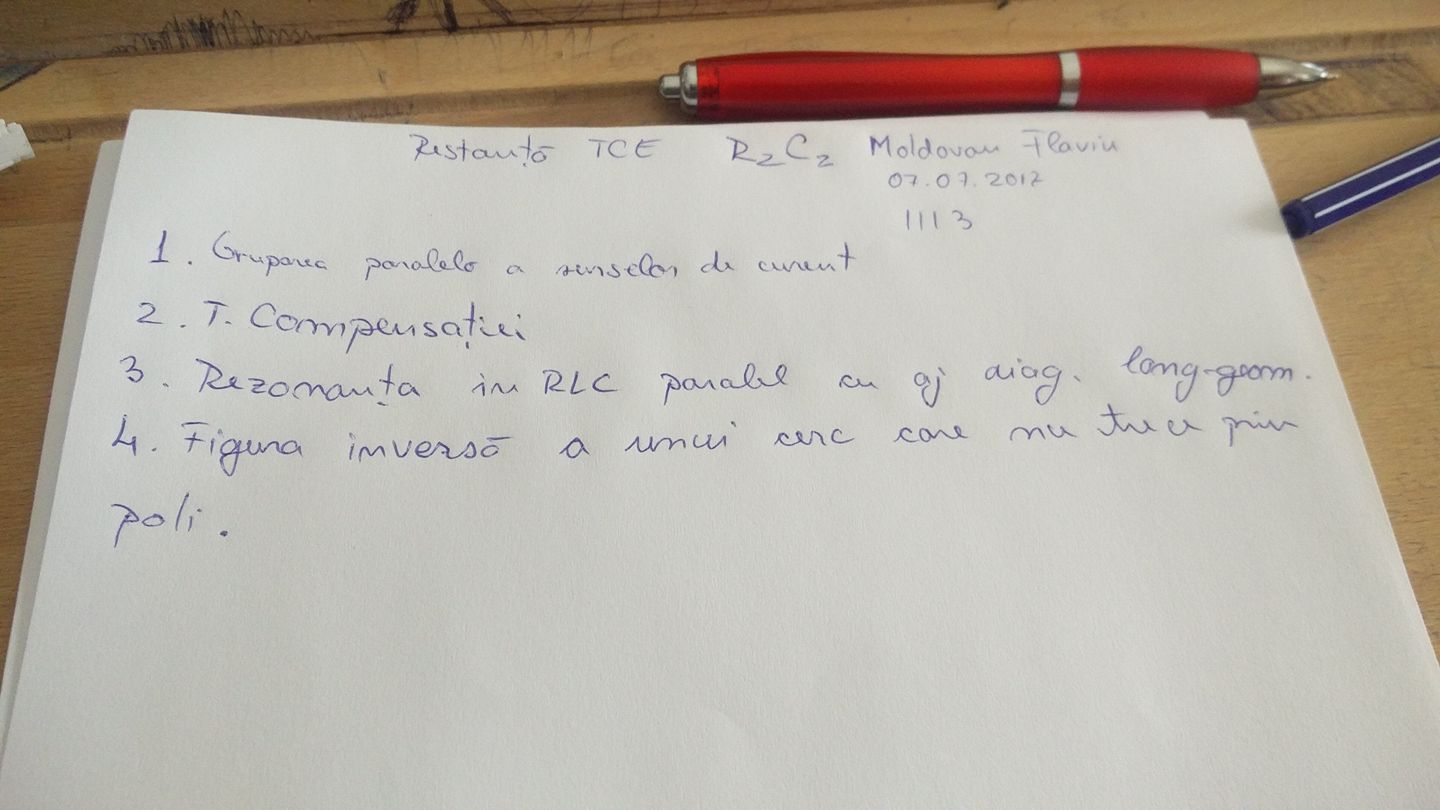 Restanță TCE R2C2 Moldovan Flaviu
07.07.2017
1113
1. Gruparea paralelă a surselor de curent
2. T. Compensației
3. Rezonanța in RLC paralel cu aj diag. long-geom.
4. Figura inversă a unui cerc care nu trece prin
poli.